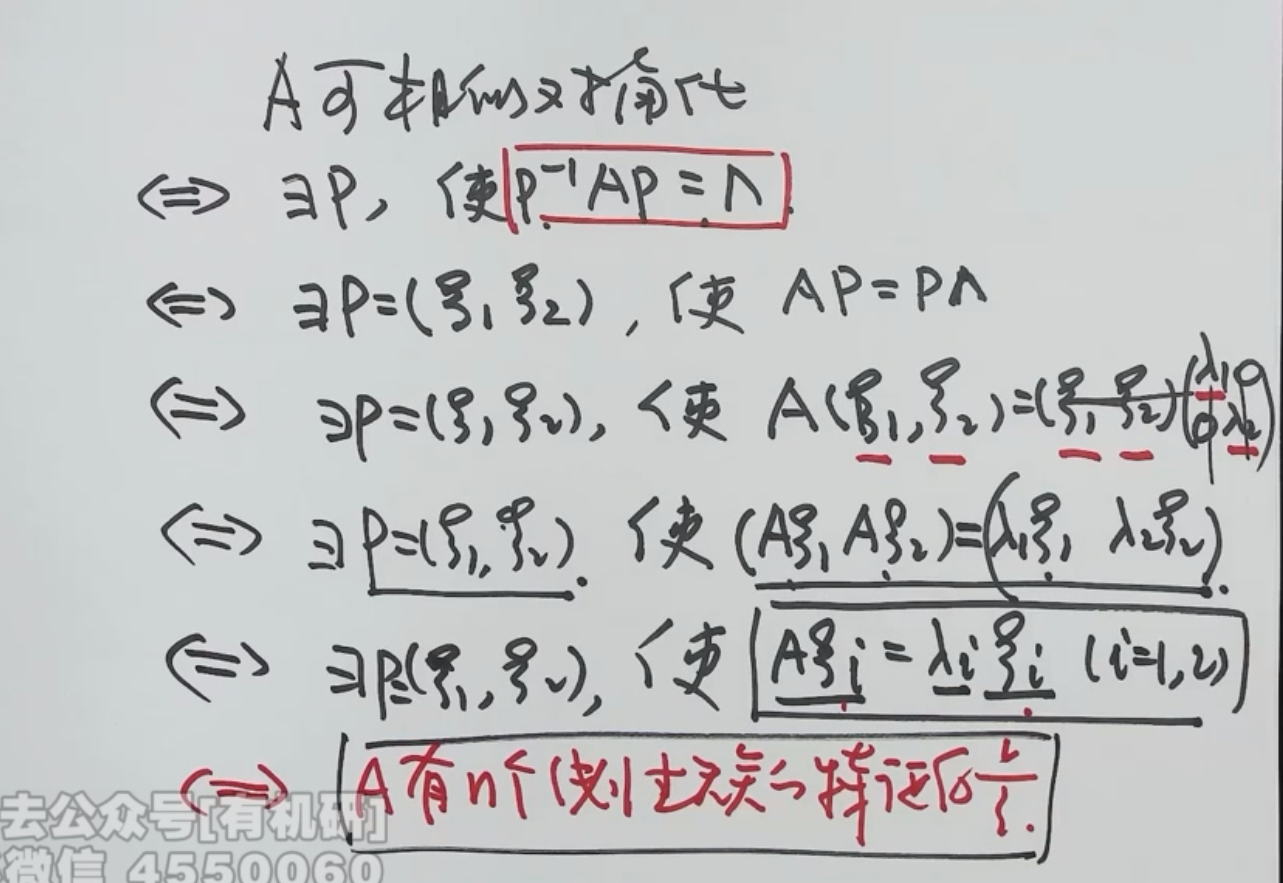 A可相似对角化
⇔ ∃P, 使 P⁻¹AP = Λ.
⇔ ∃P=(ξ₁ ξ₂), 使 AP=PΛ
⇔ ∃P=(ξ₁ ξ₂), 使 A(ξ₁,ξ₂)=(ξ₁ ξ₂)(λ₁ 0 0 λ₂)
⇔ ∃P=(ξ₁,ξ₂). 使 (Aξ₁ Aξ₂)=(λ₁ξ₁ λ₂ξ₂).
⇔ ∃P=(ξ₁,ξ₂), 使 Aξi = λiξi (i=1,2)
⇔ A有n个线性无关的特征向量.
去公众号[有机研]
微信 4550060